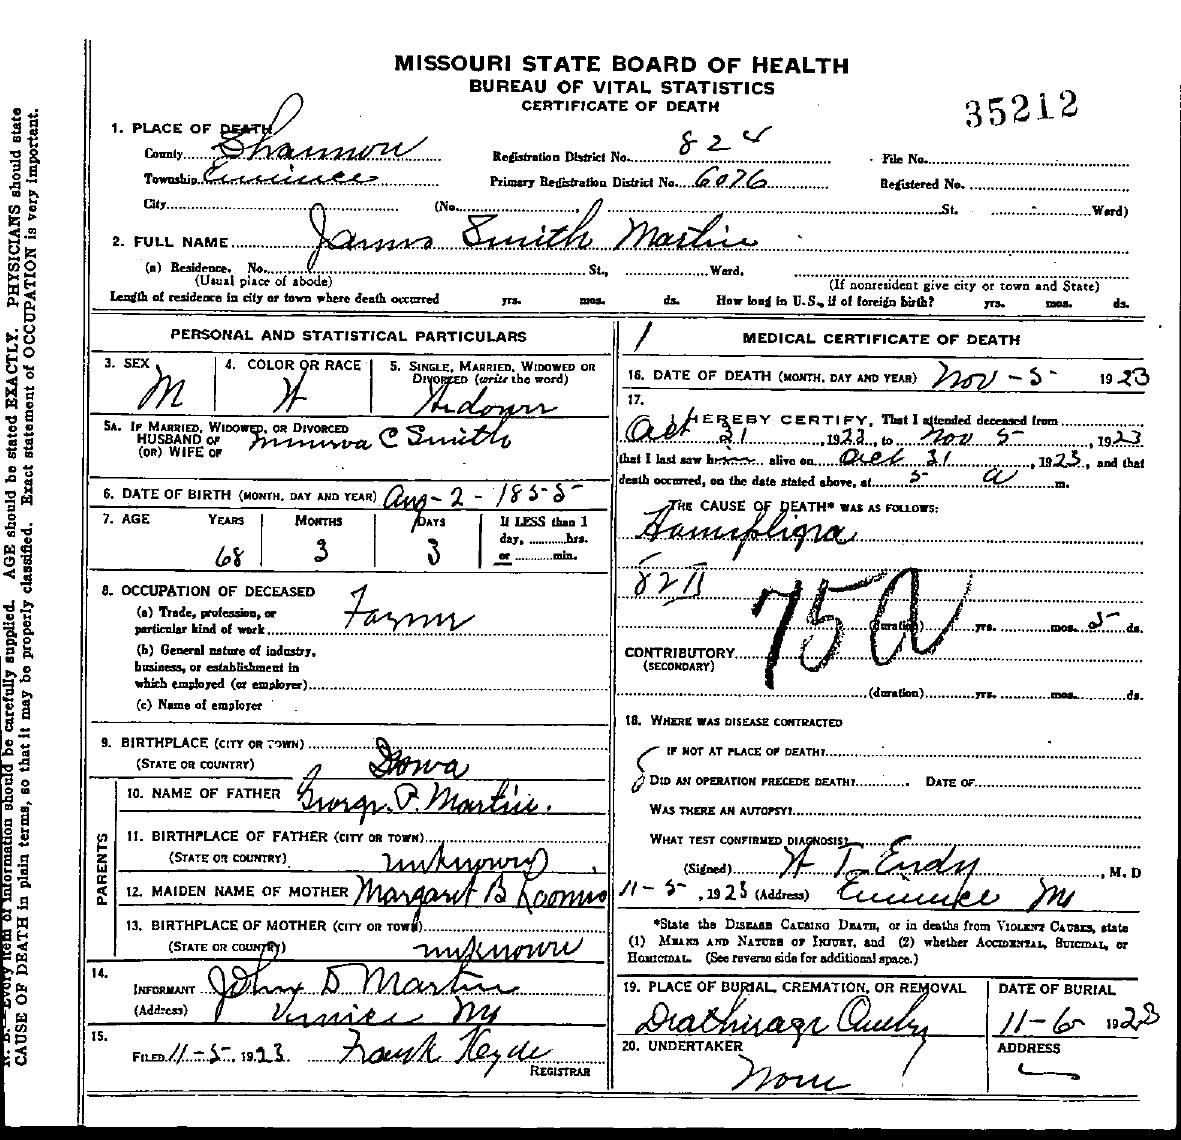 MISSOURI STATE BOARD OF HEALTH
BUREAU OF VITAL STATISTICS
CERTIFICATE OF DEATH
35212
1. PLACE OF DEATH
County Shannon Registration District No. 824 File No.
Township Eminence Primary Registration District No. 6076 Registered No.
City (No. St. Ward)
2. FULL NAME James Smith Martin
(a) Residence. No. St., Ward.
(Usual place of abode) (If nonresident give city or town and State)
Length of residence in city or town where death occurred yrs. mos. ds. How long in U.S., if of foreign birth? yrs. mos. ds.
PERSONAL AND STATISTICAL PARTICULARS
3. SEX 4. COLOR OR RACE 5. SINGLE, MARRIED, WIDOWED OR
DIVORCED (write the word)
M W Widower
5A. IF MARRIED, WIDOWED, OR DIVORCED
HUSBAND OF Minerva C Smith
(OR) WIFE OF
6. DATE OF BIRTH (MONTH, DAY AND YEAR) Aug-2-1855
7. AGE YEARS MONTHS DAYS If LESS than 1
day, hrs.
or min.
68 3 3
8. OCCUPATION OF DECEASED
(a) Trade, profession, or
particular kind of work Farmer
(b) General nature of industry,
business, or establishment in
which employed (or employer)
(c) Name of employer
9. BIRTHPLACE (CITY OR TOWN)
(STATE OR COUNTRY) Iowa
PARENTS
10. NAME OF FATHER George P. Martin.
11. BIRTHPLACE OF FATHER (CITY OR TOWN)
(STATE OR COUNTRY) unknown
12. MAIDEN NAME OF MOTHER Margaret B Loomis
13. BIRTHPLACE OF MOTHER (CITY OR TOWN)
(STATE OR COUNTRY) unknown
14.
INFORMANT John D Martin
(Address) Mo
15.
FILED 11-5-1923 Frank Hyde
REGISTRAR
MEDICAL CERTIFICATE OF DEATH
16. DATE OF DEATH (MONTH, DAY AND YEAR) Nov-5- 1923
17.
I HEREBY CERTIFY, That I attended deceased from
Oct 31, 1923, to Nov 5, 1923
that I last saw him alive on Oct 31, 1923, and that
death occurred, on the date stated above, at 5 a m.
THE CAUSE OF DEATH* WAS AS FOLLOWS:
82 II
75a
(duration) yrs. mos. 5 ds.
CONTRIBUTORY
(SECONDARY)
(duration) yrs. mos. ds.
18. WHERE WAS DISEASE CONTRACTED
IF NOT AT PLACE OF DEATH?
DID AN OPERATION PRECEDE DEATH? DATE OF
WAS THERE AN AUTOPSY?
WHAT TEST CONFIRMED DIAGNOSIS?
(Signed) , M. D
11-5, 1923 (Address) Eminence Mo
*State the DISEASE CAUSING DEATH, or in deaths from VIOLENT CAUSES, state
(1) MEANS AND NATURE OF INJURY, and (2) whether ACCIDENTAL, SUICIDAL, or
HOMICIDAL. (See reverse side for additional space.)
19. PLACE OF BURIAL, CREMATION, OR REMOVAL DATE OF BURIAL
11-6 1923
20. UNDERTAKER ADDRESS
None
N. B.—Every item of information should be carefully supplied. AGE should be stated EXACTLY. PHYSICIANS should state
CAUSE OF DEATH in plain terms, so that it may be properly classified. Exact statement of OCCUPATION is very important.